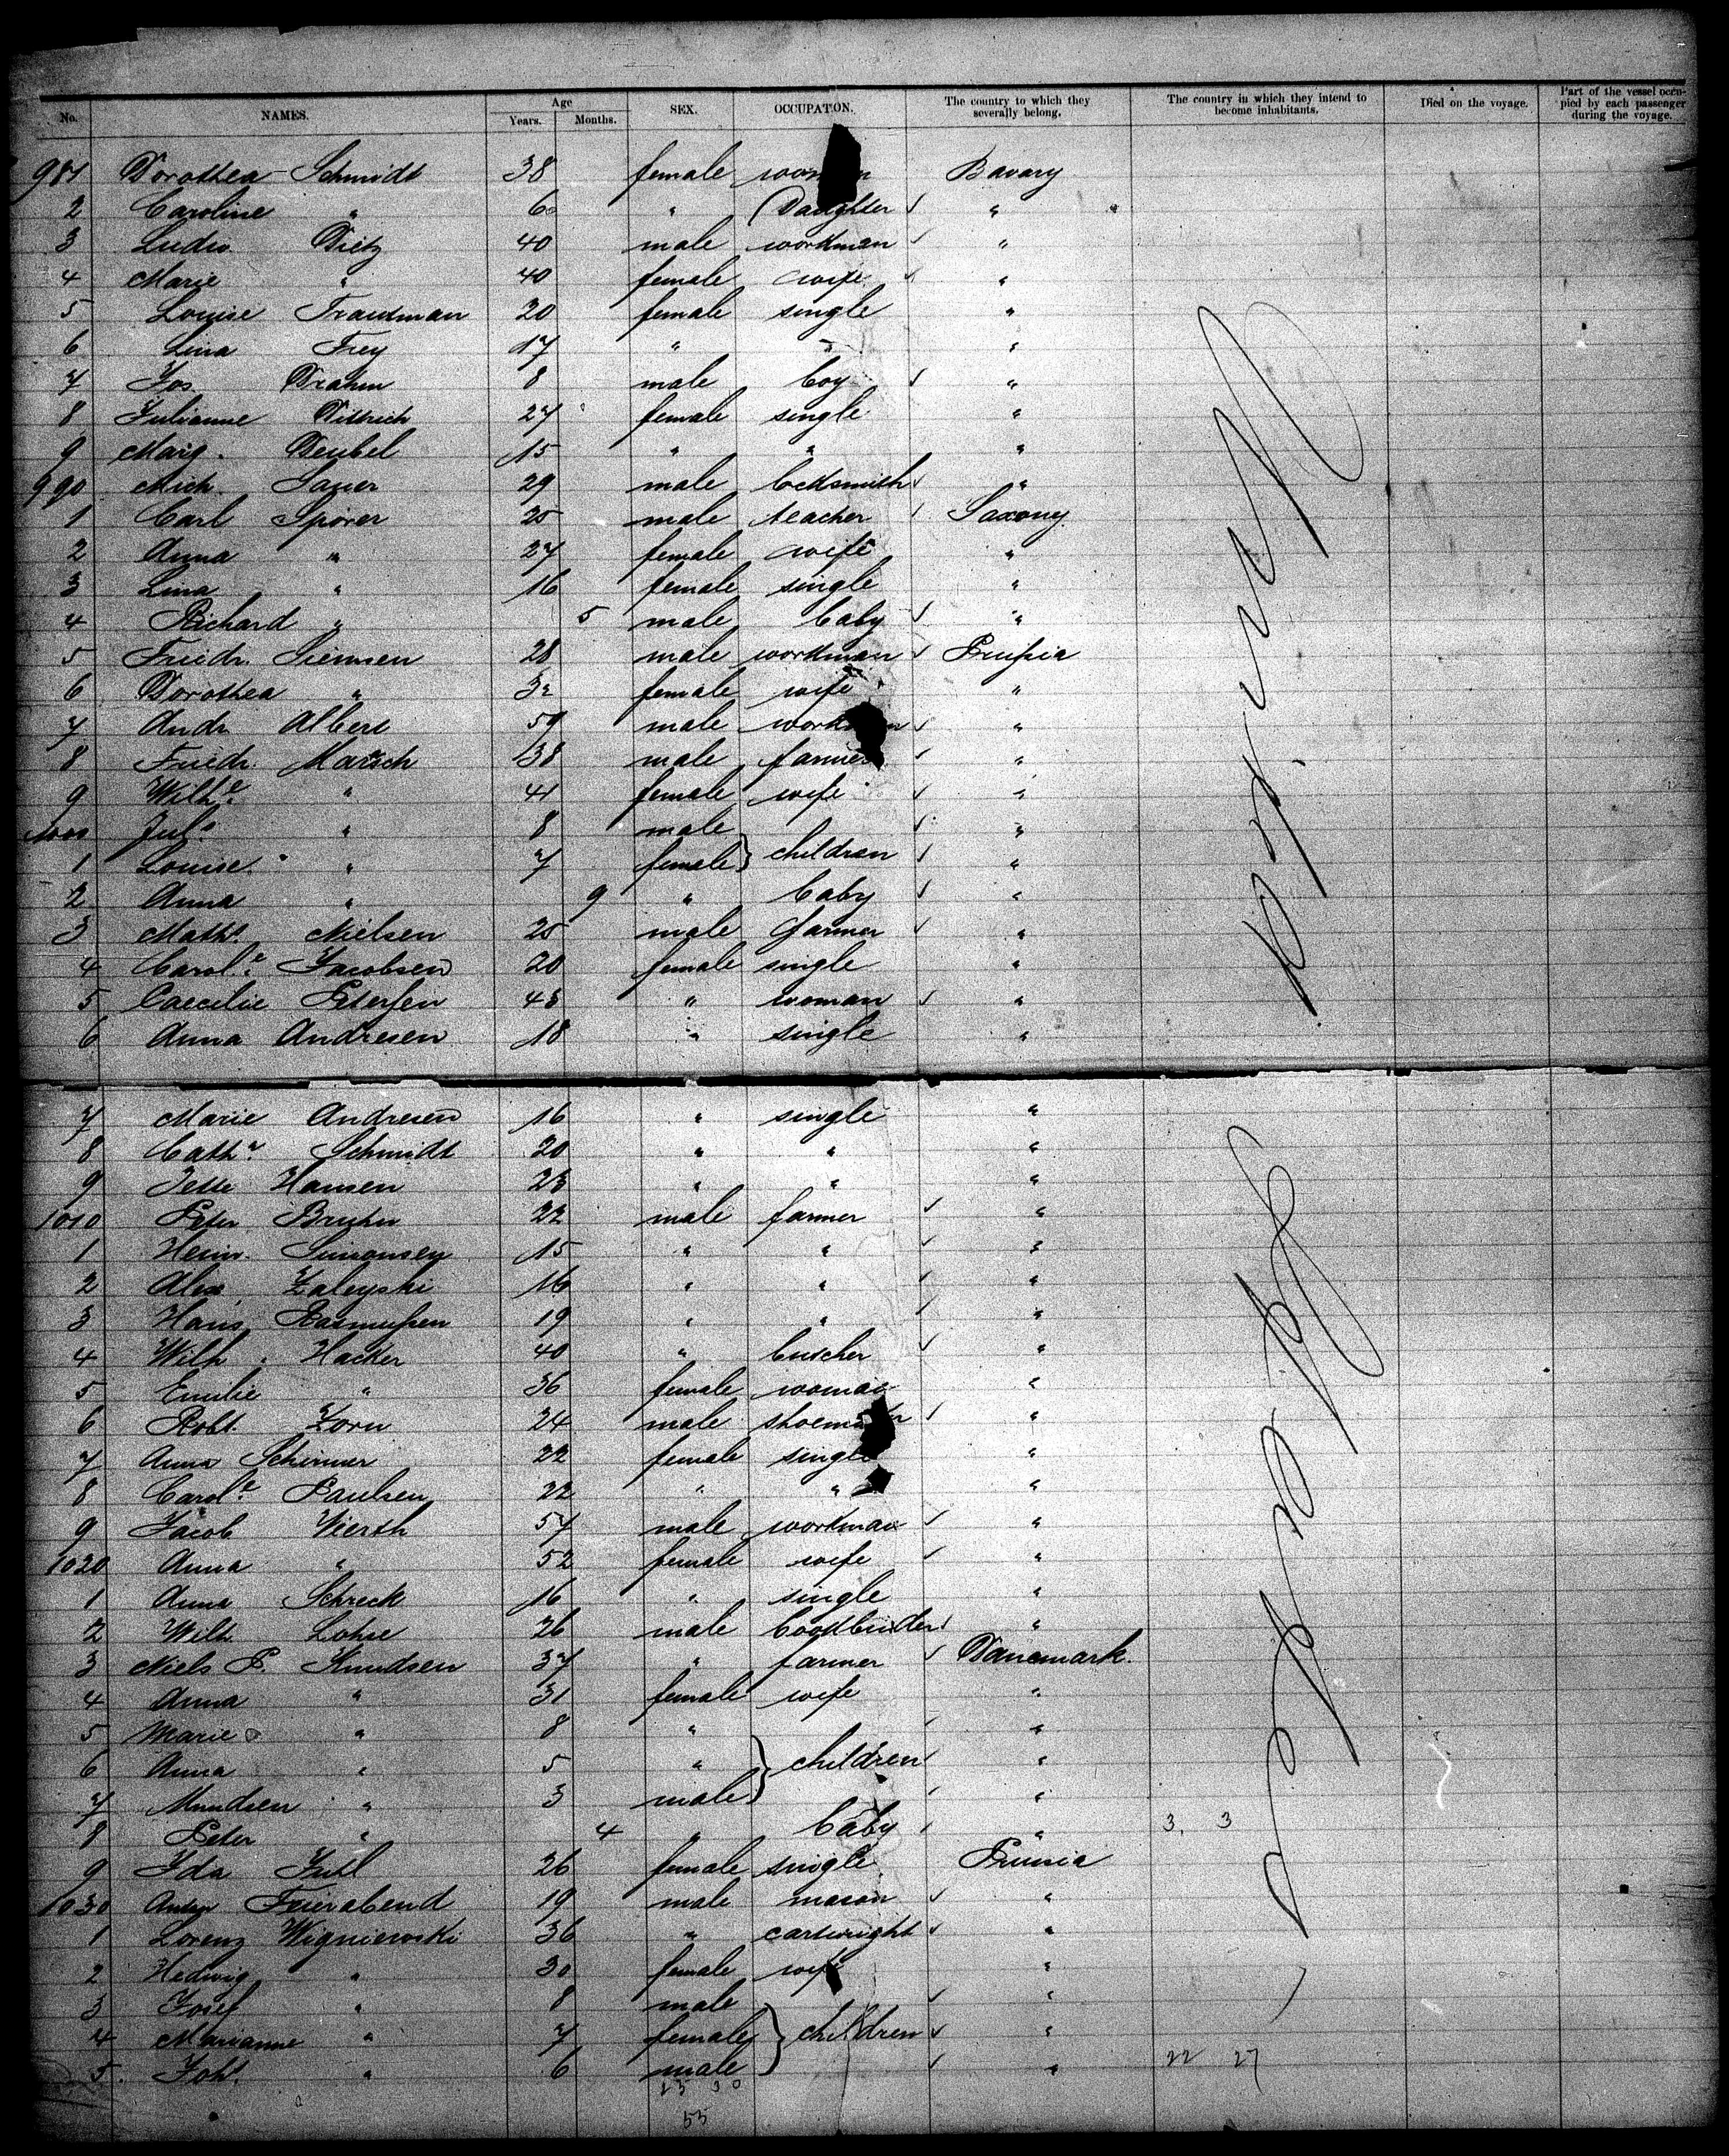 No. NAMES. Age Years. Months. SEX. OCCUPATION. The country to which they severally belong. The country in which they intend to become inhabitants. Died on the voyage. Part of the vessel occupied by each passenger during the voyage.
981 Dorothea Schmidt 38 female woman Bavary
2 Caroline " 6 " Daughter "
3 Ludw. Dietz 40 male workman "
4 Marie " 40 female wife "
5 Louise Trautman 20 female single "
6 Lina Frey 17 " " "
7 Jos Brahm 8 male boy "
8 Julianne Dittrich 27 female single "
9 Marg. Deubel 15 " " "
990 Mich. Sauer 29 male locksmith "
1 Carl Spörer 25 male teacher Saxony
2 Anna " 27 female wife "
3 Lina " 16 female single "
4 Richard " 5 male baby "
5 Friedr. Siemsen 28 male workman Prussia
6 Dorothea " 32 female wife "
7 Andr. Albert 59 male workman "
8 Friedr. Marsch 38 male farmer "
9 Wilhe. " 41 female wife "
1000 Juls " 8 male "
1 Louise " 7 female children "
2 Anna " 9 " baby "
3 Maths. Nielsen 25 male farmer "
4 Carole. Jacobsen 20 female single "
5 Caecilie Petersen 43 " woman "
6 Anna Andresen 18 " single "
7 Marie Andresen 16 " single "
8 Catha. Schmidt 20 " " "
9 Jette Hansen 23 " " "
1010 Peter Bruhn 22 male farmer "
1 Heinr. Simonsen 15 " " "
2 Alex Zaleyski 16 " " "
3 Hans Rasmussen 19 " " "
4 Wilh. Hacker 40 " butcher "
5 Emilie " 36 female woman "
6 Robt. Zorn 24 male shoemaker "
7 Anna Schirmer 22 female single "
8 Carole. Paulsen 22 " " "
9 Jacob Vierth 57 male workman "
1020 Anna " 52 female wife "
1 Anna Schreck 16 " single "
2 Wilh. Lohse 26 male bookbinder "
3 Niels P. Knudsen 37 " farmer Danemark.
4 Anna " 31 female wife "
5 Marie " 8 " "
6 Anna " 5 " children "
7 Knudsen " 3 male "
8 Peter " 4 " baby " 3. 3
9 Ida Juhl 26 female single Prussia
1030 Anton Feierabend 19 male mason "
1 Lorenz Wigniewski 36 " cartwright "
2 Hedwig " 30 female wife "
3 Josef " 8 male "
4 Marianne " 7 female children "
5. Joh. " 6 male " 22 27
55